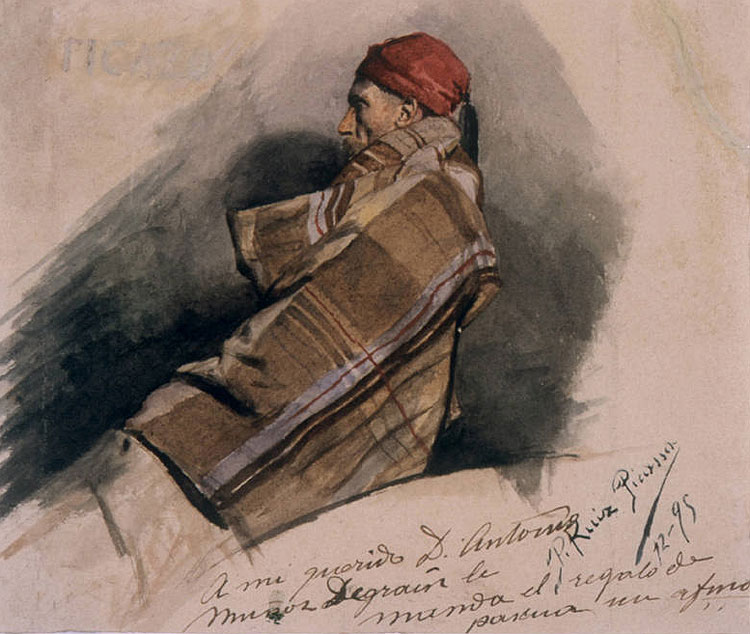 PICASSO
P. Ruiz Picasso
12-95
A mi querido D. Antonio
Muñoz Degrain le
manda el regalo de
pascua un afmo